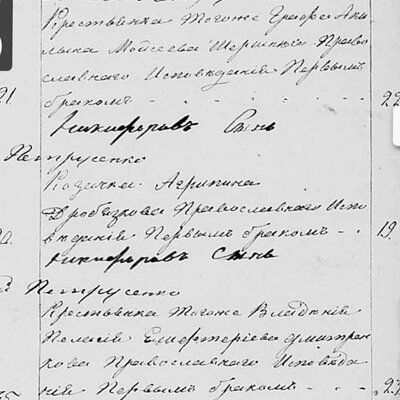 Крестьянка Тогоже Графа Аку
лька Моисеева Православ
славнаго Исповеданія Первымъ
21. бракомъ 22
Никифоровъ Сынъ
Петрусенко
Козачка Агрипина
Дробязкова Православнаго Испо
веданія Первымъ бракомъ 19
Никифоровъ Сынъ
Петрусенко
Крестьянка Тогоже Владенія
Пелагія Елефтеріева Дмитрен
кова Православнаго Исповеда
нія Первымъ бракомъ 23